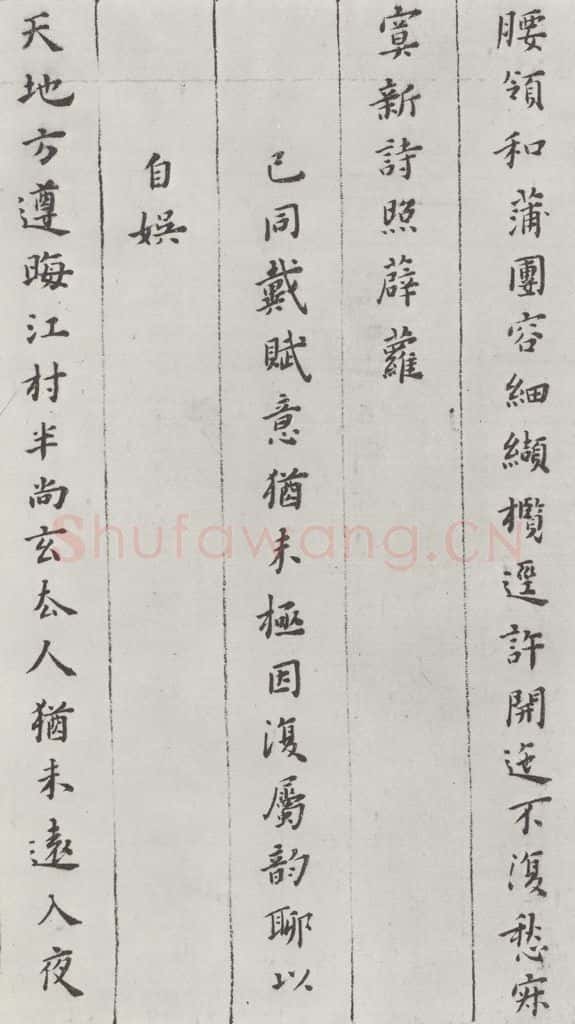 腰領和蒲團容細纈欖逕許開迤不復愁寂
寞新詩照薜蘿
已同戴賦意猶未極因復屬韵聊以
自娛
天地方遵晦江村半尚玄去人猶未遠入夜
Shufawang.CN